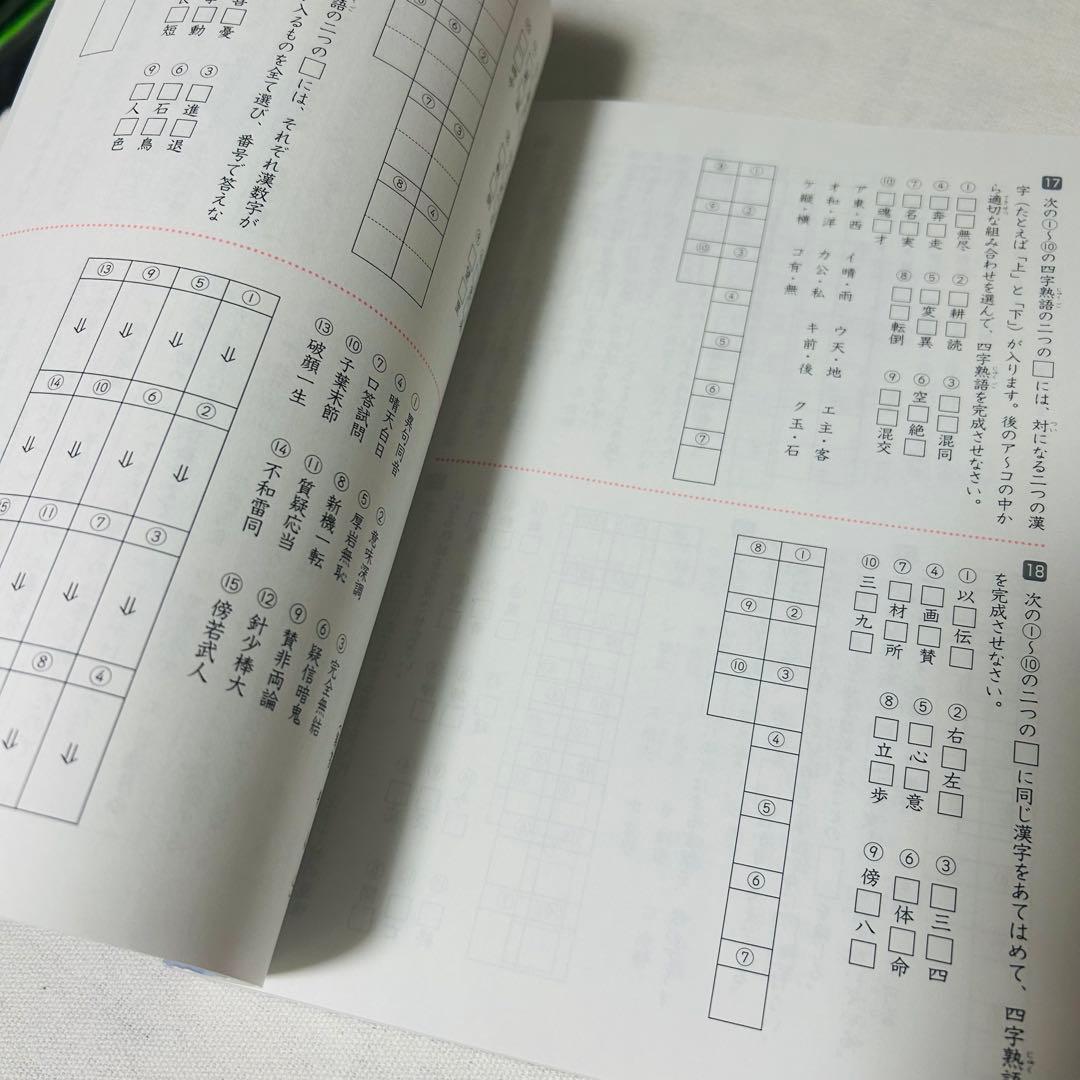 17 次の①～⑩の四字熟語の二つの□には、対になる二つの漢
字（たとえば「上」と「下」）が入ります。後のア～コの中か
ら適切な組み合わせを選んで、四字熟語を完成させなさい。
① □□無尽 ② □耕□読 ③ □□混同
④ □奔□走 ⑤ □変□異 ⑥ 空□絶□
⑦ □名□実 ⑧ □□転倒 ⑨ □□混交
⑩ □魂□才
ア 東・西 イ 晴・雨 ウ 天・地 エ 主・客
オ 和・洋 カ 公・私 キ 前・後 ク 玉・石
ケ 縦・横 コ 有・無
① ② ③ ④ ⑤ ⑥ ⑦
⑧ ⑨ ⑩
18 次の①～⑩の二つの□に同じ漢字をあてはめて、四字熟語
を完成させなさい。
① 以□伝□ ② 右□左□ ③ □三□四
④ □画□賛 ⑤ □心□意 ⑥ □体□命
⑦ □材□所 ⑧ □立□歩 ⑨ 傍□八□
⑩ 三□九□
① ② ③ ④ ⑤ ⑥ ⑦
⑧ ⑨ ⑩
語の二つの□には、それぞれ漢数字が
入るものを全て選び、番号で答えな
③ □進□退
□憂
⑥ □石□鳥
□動
⑨ □人□色
□短
② ③ ④
⑥ ⑦ ⑧
① 異句同音 ② 意味深調 ③ 完全無結
④ 晴天白日 ⑤ 厚岩無恥 ⑥ 疑信暗鬼
⑦ 口答試問 ⑧ 新機一転 ⑨ 賛非両論
⑩ 子葉末節 ⑪ 質疑応当 ⑫ 針少棒大
⑬ 破顔一生 ⑭ 不和雷同 ⑮ 傍若武人
① ⇓ ② ⇓ ③ ⇓ ④ ⇓
⑤ ⇓ ⑥ ⇓ ⑦ ⇓ ⑧ ⇓
⑨ ⇓ ⑩ ⇓ ⑪ ⇓
⑬ ⇓ ⑭ ⇓